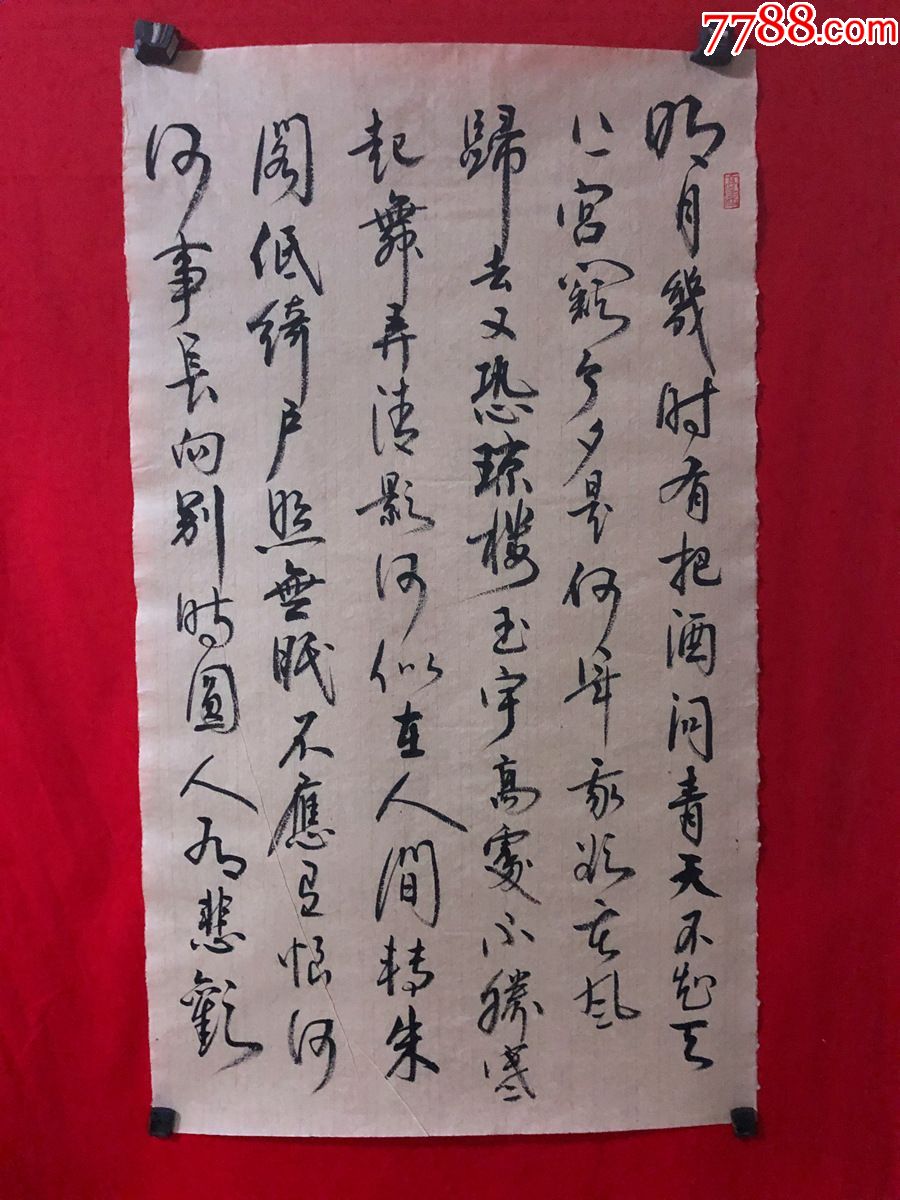 7788.com
明月幾时有把酒问青天不知天
上宫闕今夕是何年我欲乘风
歸去又恐琼楼玉宇高處不勝寒
起舞弄清影何似在人间转朱
阁低绮户照無眠不應有恨何
何事長向别時圆人有悲歡